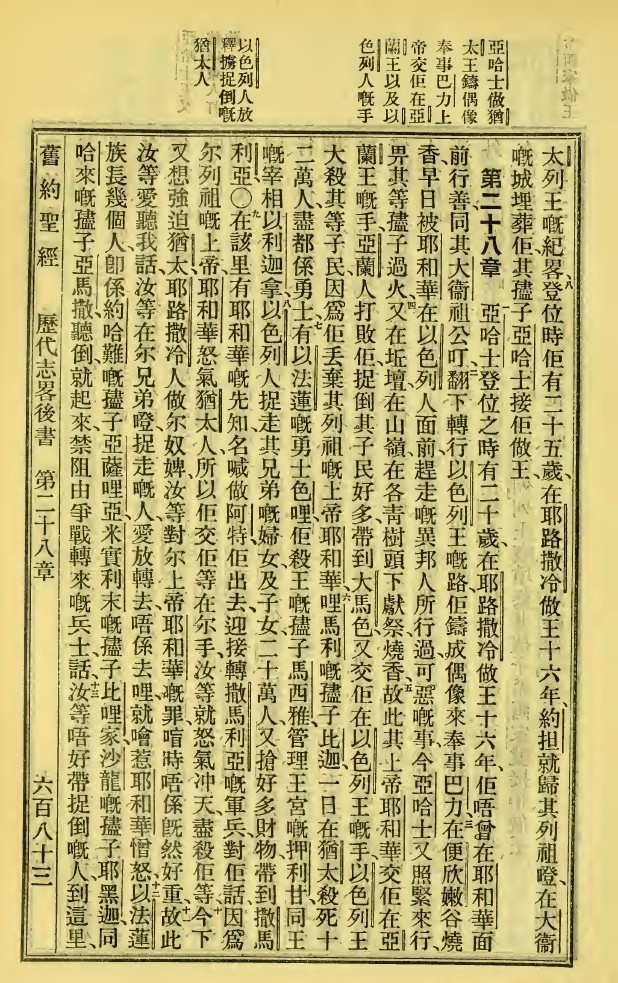 亞哈士做猶
太王鑄偶像
奉事巴力上
帝交佢在亞
蘭王以及以
色列人嘅手
以色列人放
釋擄捉倒嘅
猶太人
太列王嘅紀畧、八登位時佢有二十五歲、在耶路撒冷做王十六年、九約担就歸其列祖嶝、在大衞
嘅城埋葬佢、其孻子亞哈士接佢做王、
第二十八章 一亞哈士登位之時有二十歲、在耶路撒冷做王十六年、佢唔曾在耶和華面
前行善、同其大衞祖公叮翻、二下轉行以色列王嘅路、佢鑄成偶像來奉事巴力、三在便欣嫩谷燒
香、早日被耶和華在以色列人面前趕走嘅異邦人所行過可惡嘅事、今亞哈士又照緊來行、
畀其等孻子過火、四又在坵壇、在山嶺、在各靑樹頭下獻祭燒香、五故此其上帝耶和華交佢在亞
蘭王嘅手、亞蘭人打敗佢、捉倒其子民好多、帶到大馬色、又交佢在以色列王嘅手、以色列王
大殺其等子民、因爲佢丢棄其列祖嘅上帝耶和華、六哩馬利嘅孻子比迦、一日在猶太殺死十
二萬人、盡都係勇士、七有以法蓮嘅勇士色哩、佢殺王嘅孻子馬西雅、管理王宮嘅押利甘、同王
嘅宰相以利迦拿、八以色列人捉走其兄弟嘅婦女及子女二十萬人、又搶好多財物帶到撒馬
利亞〇九在該里有耶和華嘅先知名喊做阿特、佢出去迎接轉撒馬利亞嘅軍兵、對佢話、因爲
尔列祖嘅上帝耶和華怒氣猶太人、所以佢交佢等在尔手、汝等就怒氣冲天、盡殺佢等、十今下
又想強迫猶太耶路撒冷人做尔奴婢、汝等對尔上帝耶和華嘅罪、喧時唔係旣然好重、十一故此
汝等愛聽我話、汝等在尔兄弟嶝捉走嘅人、愛放轉去、唔係去哩就噲惹耶和華憎怒、十二以法蓮
族長幾個人、卽係約哈難嘅孻子亞薩哩亞、米實利末嘅孻子比哩家、沙龍嘅孻子耶黑迦、同
哈來嘅孻子亞馬撒、聽倒就起來禁阻由爭戰轉來嘅兵士、話、十三汝等唔好帶捉倒嘅人到這里、
舊約聖經 歷代志畧後書 第二十八章 六百八十三